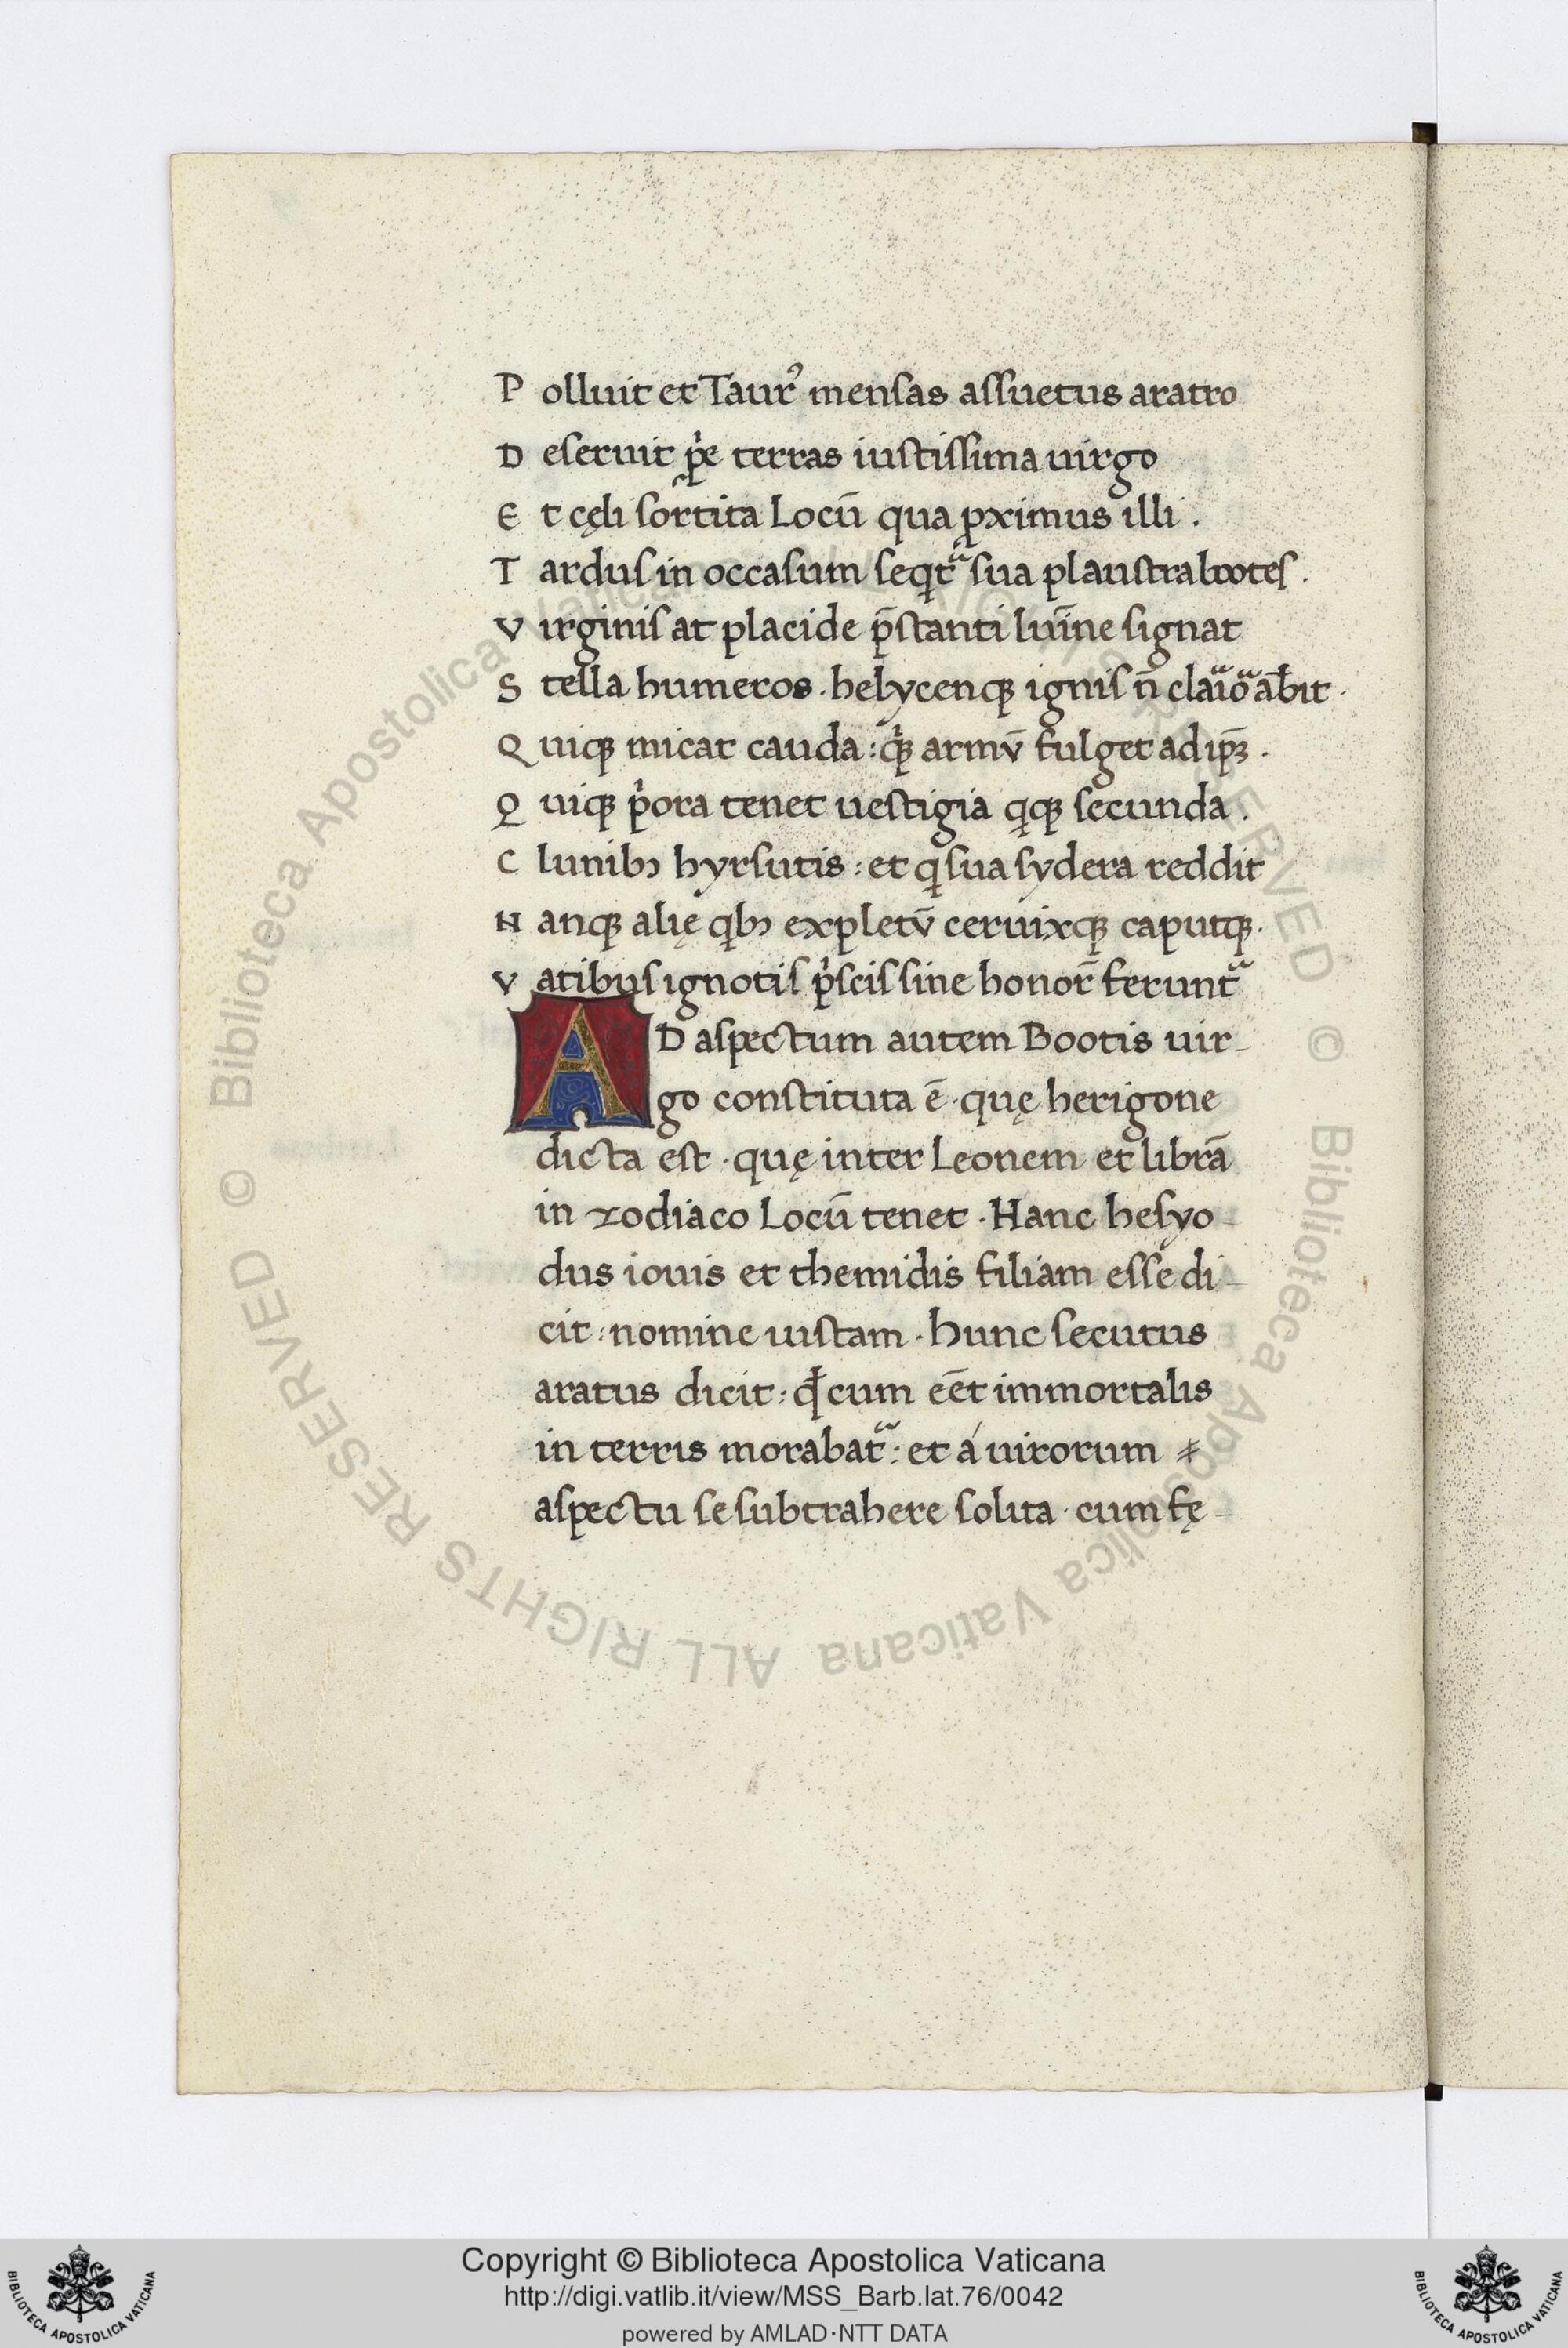 P olluit et Taurꝰ mensas assuetus aratro
D eseruit p̲p̲e terras iustissima uirgo
E t cęli sortita Locū qua ꝓximus illi .
T ardus in occasum seqͥt᷑ sua plaustra bootes .
V irginis at placide p̄stanti lūīne signat
S tella humeros · helycenqꝫ ignis n̄ clarͣioͣ ābit ·
Q uiqꝫ micat cauda : qͥqꝫ armū fulget ad ip̄ꝫ .
Q uiqꝫ pͥora tenet uestigia qͥqꝫ secunda .
C lunibꝫ hyrsutis : et qͥ sua sydera reddit
N anqꝫ alię qͥbꝫ expletū ceruixqꝫ caputqꝫ .
V atibus ignotis pͥscis sine honor̄ ferunt᷑
AD aspectum autem Bootis uir-
go constituta ē · quę herigone
dicta est · quę inter Leonem et librā
in zodiaco Locū tenet · Hanc hesyo-
dus iouis et themidis filiam esse di-
cit : nomine iustam · hunc secutus
aratus dicit : qđ cum eēt immortalis
in terris morabat᷑ : et á uirorum
aspectu se subtrahere solita · cum fę-
© Biblioteca Apostolica Vaticana ALL RIGHTS RESERVED © Biblioteca Apostolica Vaticana ALL RIGHTS RESERVED
Copyright © Biblioteca Apostolica Vaticana
http://digi.vatlib.it/view/MSS_Barb.lat.76/0042
powered by AMLAD·NTT DATA
BIBLIOTECA APOSTOLICA VATICANA
BIBLIOTECA APOSTOLICA VATICANA